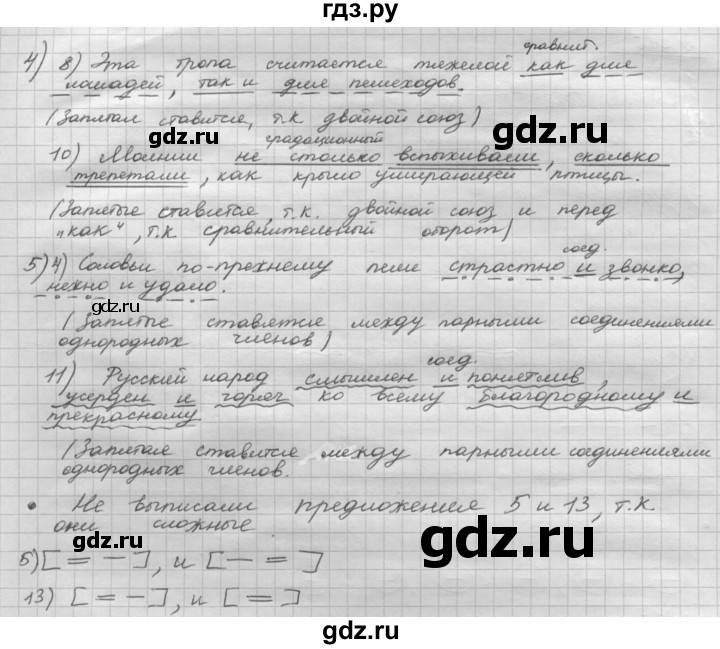 гдз.ру
сравнит.
4) 8) Эта тропа считается тяжелой как для
лошадей, так и для пешеходов.
(Запятая ставится, т.к двойной союз)
градационный
10) Молнии не столько вспыхивали, сколько
трепетали, как крыло умирающей птицы.
(Запятые ставятся, т.к. двойной союз и перед
"как", т.к сравнительный оборот)
соед.
5) 4) Соловьи по-прежнему пели страстно и звонко,
нежно и удало.
(Запятые ставятся между парными соединениями
однородных членов)
соед.
11) Русский народ смышлен и понятлив,
усерден и горяч ко всему благородному и
прекрасному
(Запятая ставится между парными соединениями
однородных членов.
• Не выписали предложения 5 и 13, т.к.
они сложные
5) [= −], и [− =]
13) [= −], и [=]
gdz.ru
gdz.ru
gdz.ru
gdz.ru
gdz.ru
gdz.ru
gdz.ru
gdz.ru
gdz.ru
gdz.ru